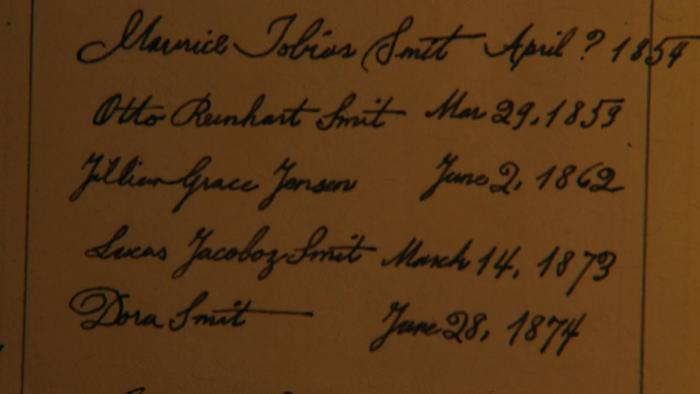 Maurice Tobias Smit April ? 1854
Otto Reinhart Smit Mar 29, 1859
Jillian Grace Jensen June 2, 1862
Lucas Jacoboz Smit March 14, 1873
Dora Smit June 28, 1874